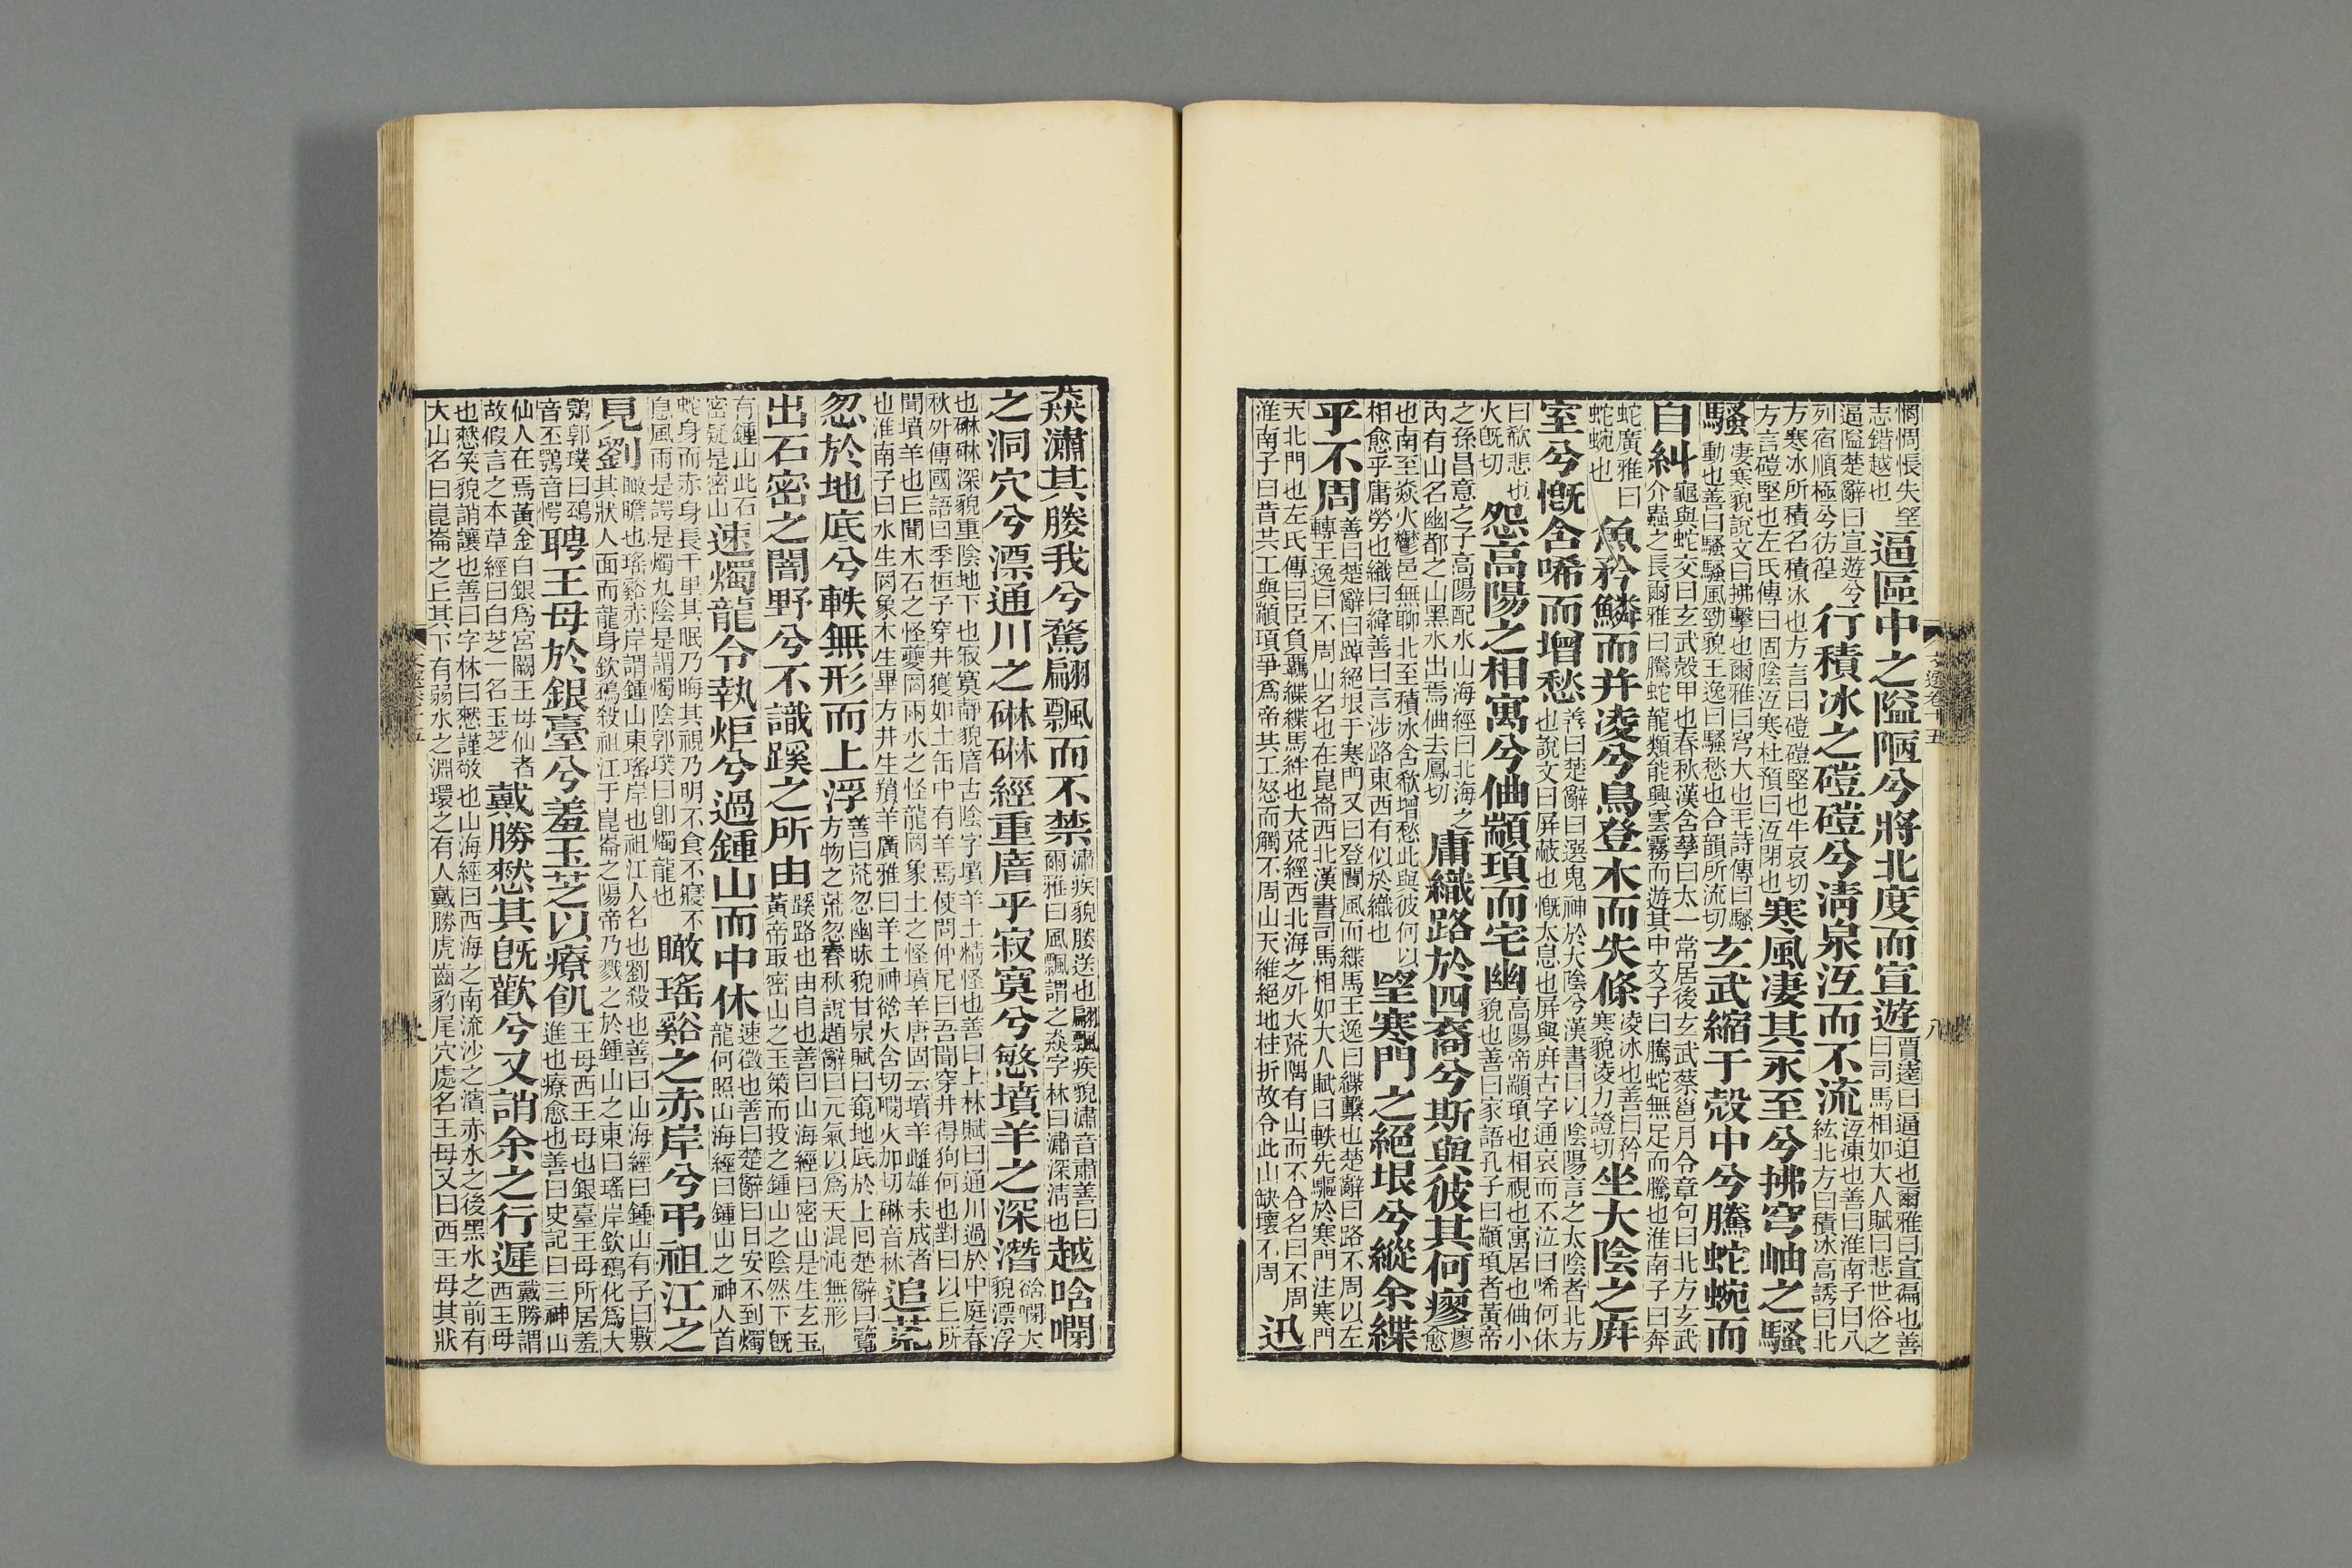 惘惆悵失望志錯越也逼區中之隘陋兮將北度而宣遊賈逵曰逼迫也爾雅曰宣徧也善曰司馬相如大人賦曰悲世俗之
逼隘楚辭曰宣遊兮列宿順極兮彷徨行積冰之磑磑兮清泉沍而不流沍凍也善曰淮南子曰八紘北方曰積冰高誘曰北
方寒冰所積名積冰也方言曰磑磑堅也牛哀切方言磑堅也左氏傳曰固陰沍寒杜預曰沍閉也寒風凄其永至兮拂穹岫之騷
騷凄寒貌說文曰拂擊也爾雅曰穹大也毛詩傳曰騷動也善曰騷騷風勁貌王逸曰騷愁也合韻所流切玄武縮于殼中兮騰蛇蜿而
自糾龜與蛇交曰玄武殼甲也春秋漢含孳曰太一常居後玄武蔡邕月令章句曰北方玄武介蟲之長爾雅曰騰蛇龍類能興雲霧而遊其中文子曰騰蛇無足而騰也淮南子曰奔
蛇廣雅曰蛇蜿也魚矜鱗而并凌兮鳥登木而失條凌冰也善曰矜寒貌凌力證切坐大陰之庰
室兮慨含唏而增愁善曰楚辭曰選鬼神於大陰兮漢書曰以陰陽言之太陰者北方也說文曰屏蔽也慨太息也屏與庰古字通哀而不泣曰唏何休
曰欷悲也火旣切怨高陽之相寓兮伷顓頊而宅幽高陽帝顓頊也相視也寓居也伷小貌也善曰家語孔子曰顓頊者黃帝
之孫昌意之子高陽配水山海經曰北海之內有山名幽都之山黑水出焉伷去鳳切庸織路於四裔兮斯與彼其何瘳瘳愈
也南至焱火鬱邑無聊北至積冰含欷增愁此與彼何以相愈乎庸勞也織曰緯善曰言涉路東西有似於織也望寒門之絕垠兮縱余緤
乎不周善曰楚辭曰踔絕垠于寒門又曰登閬風而緤馬王逸曰緤繫也楚辭曰路不周以左轉王逸曰不周山名也在崑崙西北漢書司馬相如大人賦曰軼先驅於寒門注寒門
天北門也左氏傳曰臣負羈緤緤馬絆也大荒經西北海之外大荒隅有山而不合名曰不周淮南子曰昔共工與顓頊爭爲帝共工怒而觸不周山天維絕地柱折故令此山缺壞不周迅
焱潚其媵我兮鶩翩飄而不禁潚疾貌媵送也翩飄疾貌潚音肅善曰爾雅曰風飄謂之焱字林曰潚深清也越唅㘕
之洞穴兮漂通川之碄碄經重㾕乎寂寞兮慜墳羊之深潛唅㘕大貌漂浮
也碄碄深貌重陰地下也寂寞靜貌㾕古陰字墳羊土精怪也善曰上林賦曰通川過於中庭春秋外傳國語曰季桓子穿井獲如土缶中有羊焉使問仲尼曰吾聞穿井得狗何也對曰以丘所
聞墳羊也丘聞木石之怪夔罔兩水之怪龍罔象土之怪墳羊唐固云墳羊雌雄未成者也淮南子曰水生罔象木生畢方井生羵羊廣雅曰羊土神唅火含切㘕火加切碄音林追荒
忽於地底兮軼無形而上浮善曰荒忽幽昧貌甘泉賦曰窺地底於上回楚辭曰覽方物之荒忽春秋說題辭曰元氣以爲天混沌無形
出石密之闇野兮不識蹊之所由蹊路也由自也善曰山海經曰密山是生玄玉黃帝取密山之玉策而投之鍾山之陰然下旣
有鍾山此石密疑是密山速燭龍令執炬兮過鍾山而中休速徵也善曰楚辭曰日安不到燭龍何照山海經曰鍾山之神人首
蛇身而赤身長千里其眠乃晦其視乃明不食不寢不息風雨是謁是燭九陰是謂燭陰郭璞曰卽燭龍也瞰瑤谿之赤岸兮弔祖江之
見劉瞰瞻也瑤谿赤岸謂鍾山東瑤岸也祖江人名也劉殺也善曰山海經曰鍾山有子曰鼓其狀人面而龍身欽䲹殺祖江于崑崙之陽帝乃戮之於鍾山之東曰瑤岸欽䲹化爲大
鶚郭璞曰䲹音丕鶚音愕聘王母於銀臺兮羞玉芝以療飢王母西王母也銀臺王母所居羞進也療愈也善曰史記曰三神山
仙人在焉黃金白銀爲宮闕王母仙者故假言之本草經曰白芝一名玉芝戴勝憗其旣歡兮又誚余之行遲戴勝謂西王母
也憗笑貌誚讓也善曰字林曰憗謹敬也山海經曰西海之南流沙之濱赤水之後黑水之前有大山名曰崑崙之丘其下有弱水之淵環之有人戴勝虎齒豹尾穴處名王母又曰西王母其狀